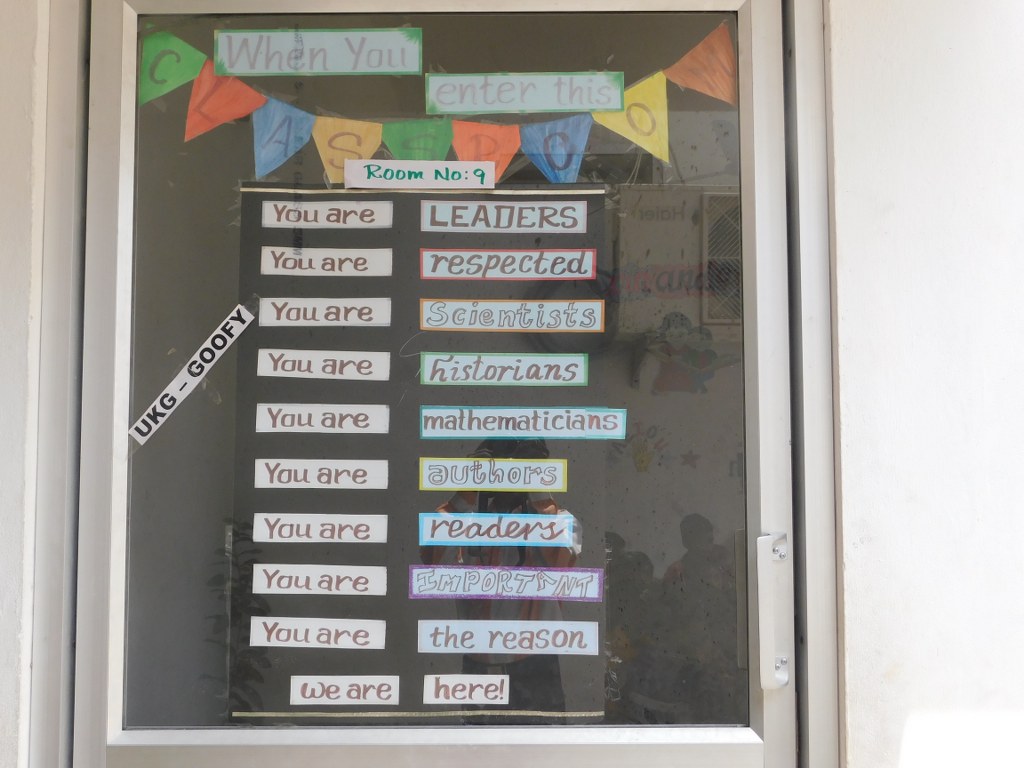 When You
enter this
CLASSROOM
Room No: 9
You are LEADERS
You are respected
You are Scientists
You are historians
You are mathematicians
You are authors
You are readers
You are IMPORTANT
You are the reason
we are here!
UKG - GOOFY
Haier